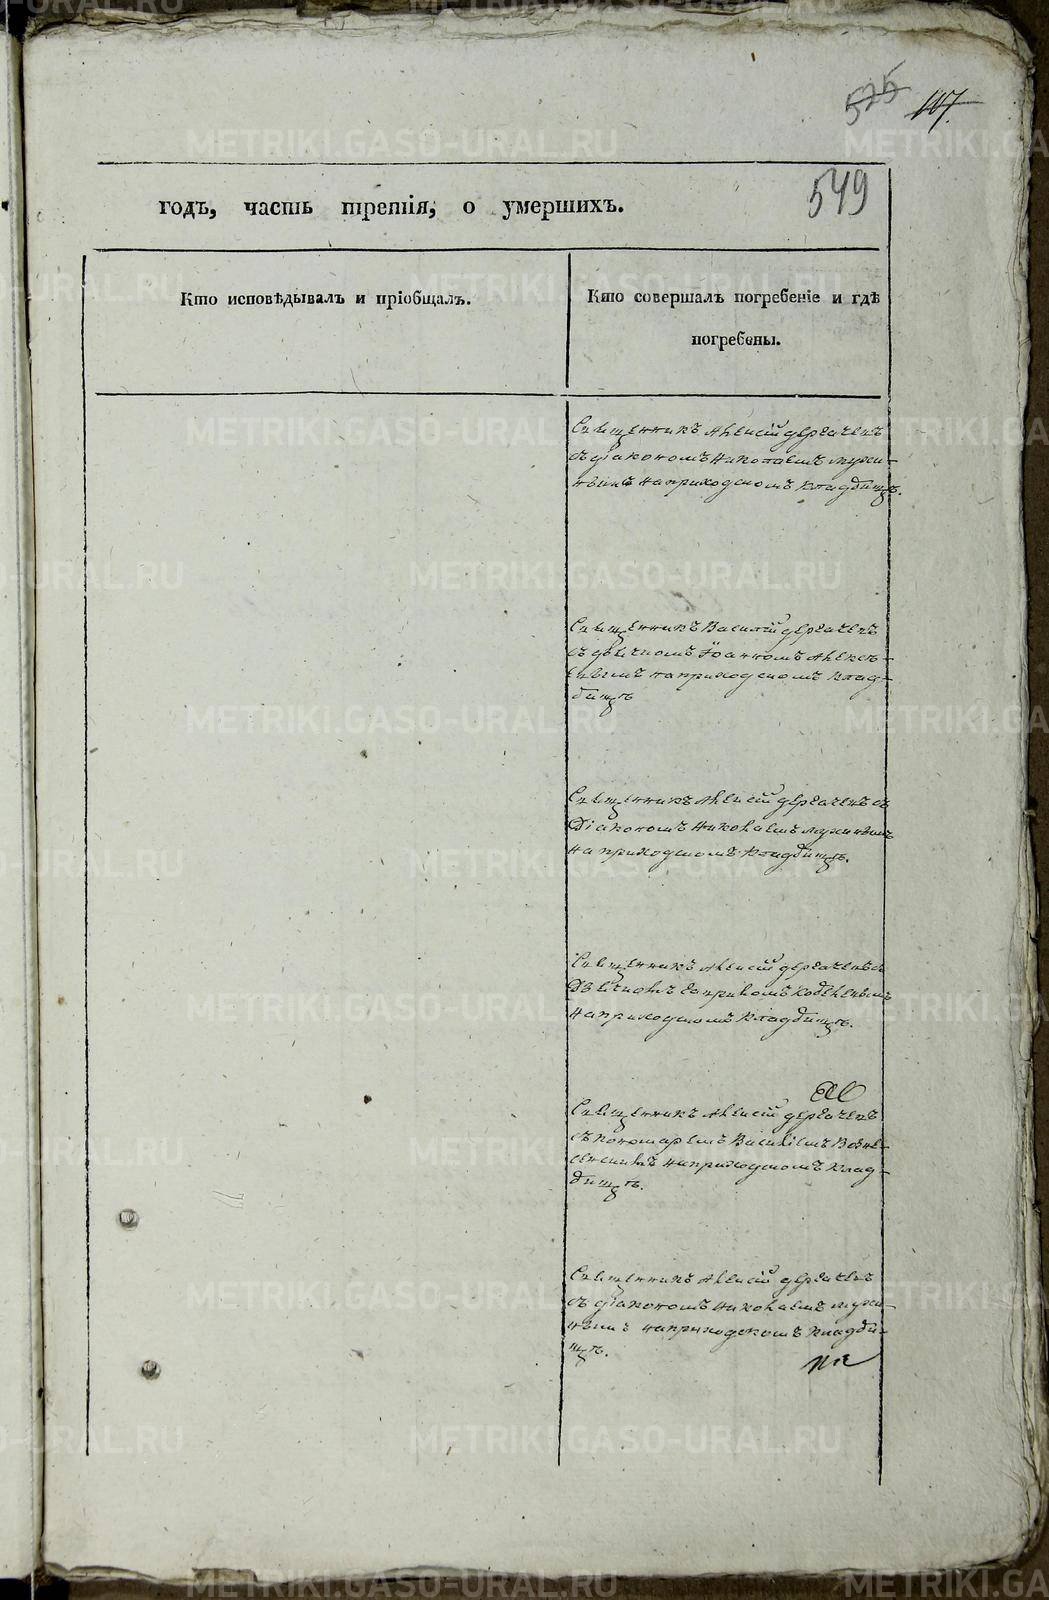 525 107.
549
годъ, часть третія, о умершихъ.
Кто исповѣдывалъ и пріобщалъ.
Кто совершалъ погребеніе и гдѣ
погребены.
Священникъ Алексій Дергачевъ
съ діакономъ Николаемъ
на приходскомъ кладбищѣ.
Священникъ Василій Дергачевъ
съ дьячкомъ Іоанномъ Алексѣ-
евымъ на приходскомъ клад-
бищѣ
Священникъ Алексій Дергачевъ съ
Діакономъ Николаемъ
на приходскомъ кладбищѣ.
Священникъ Алексій Дергачевъ съ
Дьячкомъ
на приходскомъ кладбищѣ.
Священникъ Алексій Дергачевъ
съ пономаремъ Василіемъ Возне-
сенскимъ на приходскомъ клад-
бищѣ.
Священникъ Алексій Дергачевъ
съ діакономъ Николаемъ
на приходскомъ кладби-
щѣ.
METRIKI.GASO-URAL.RU